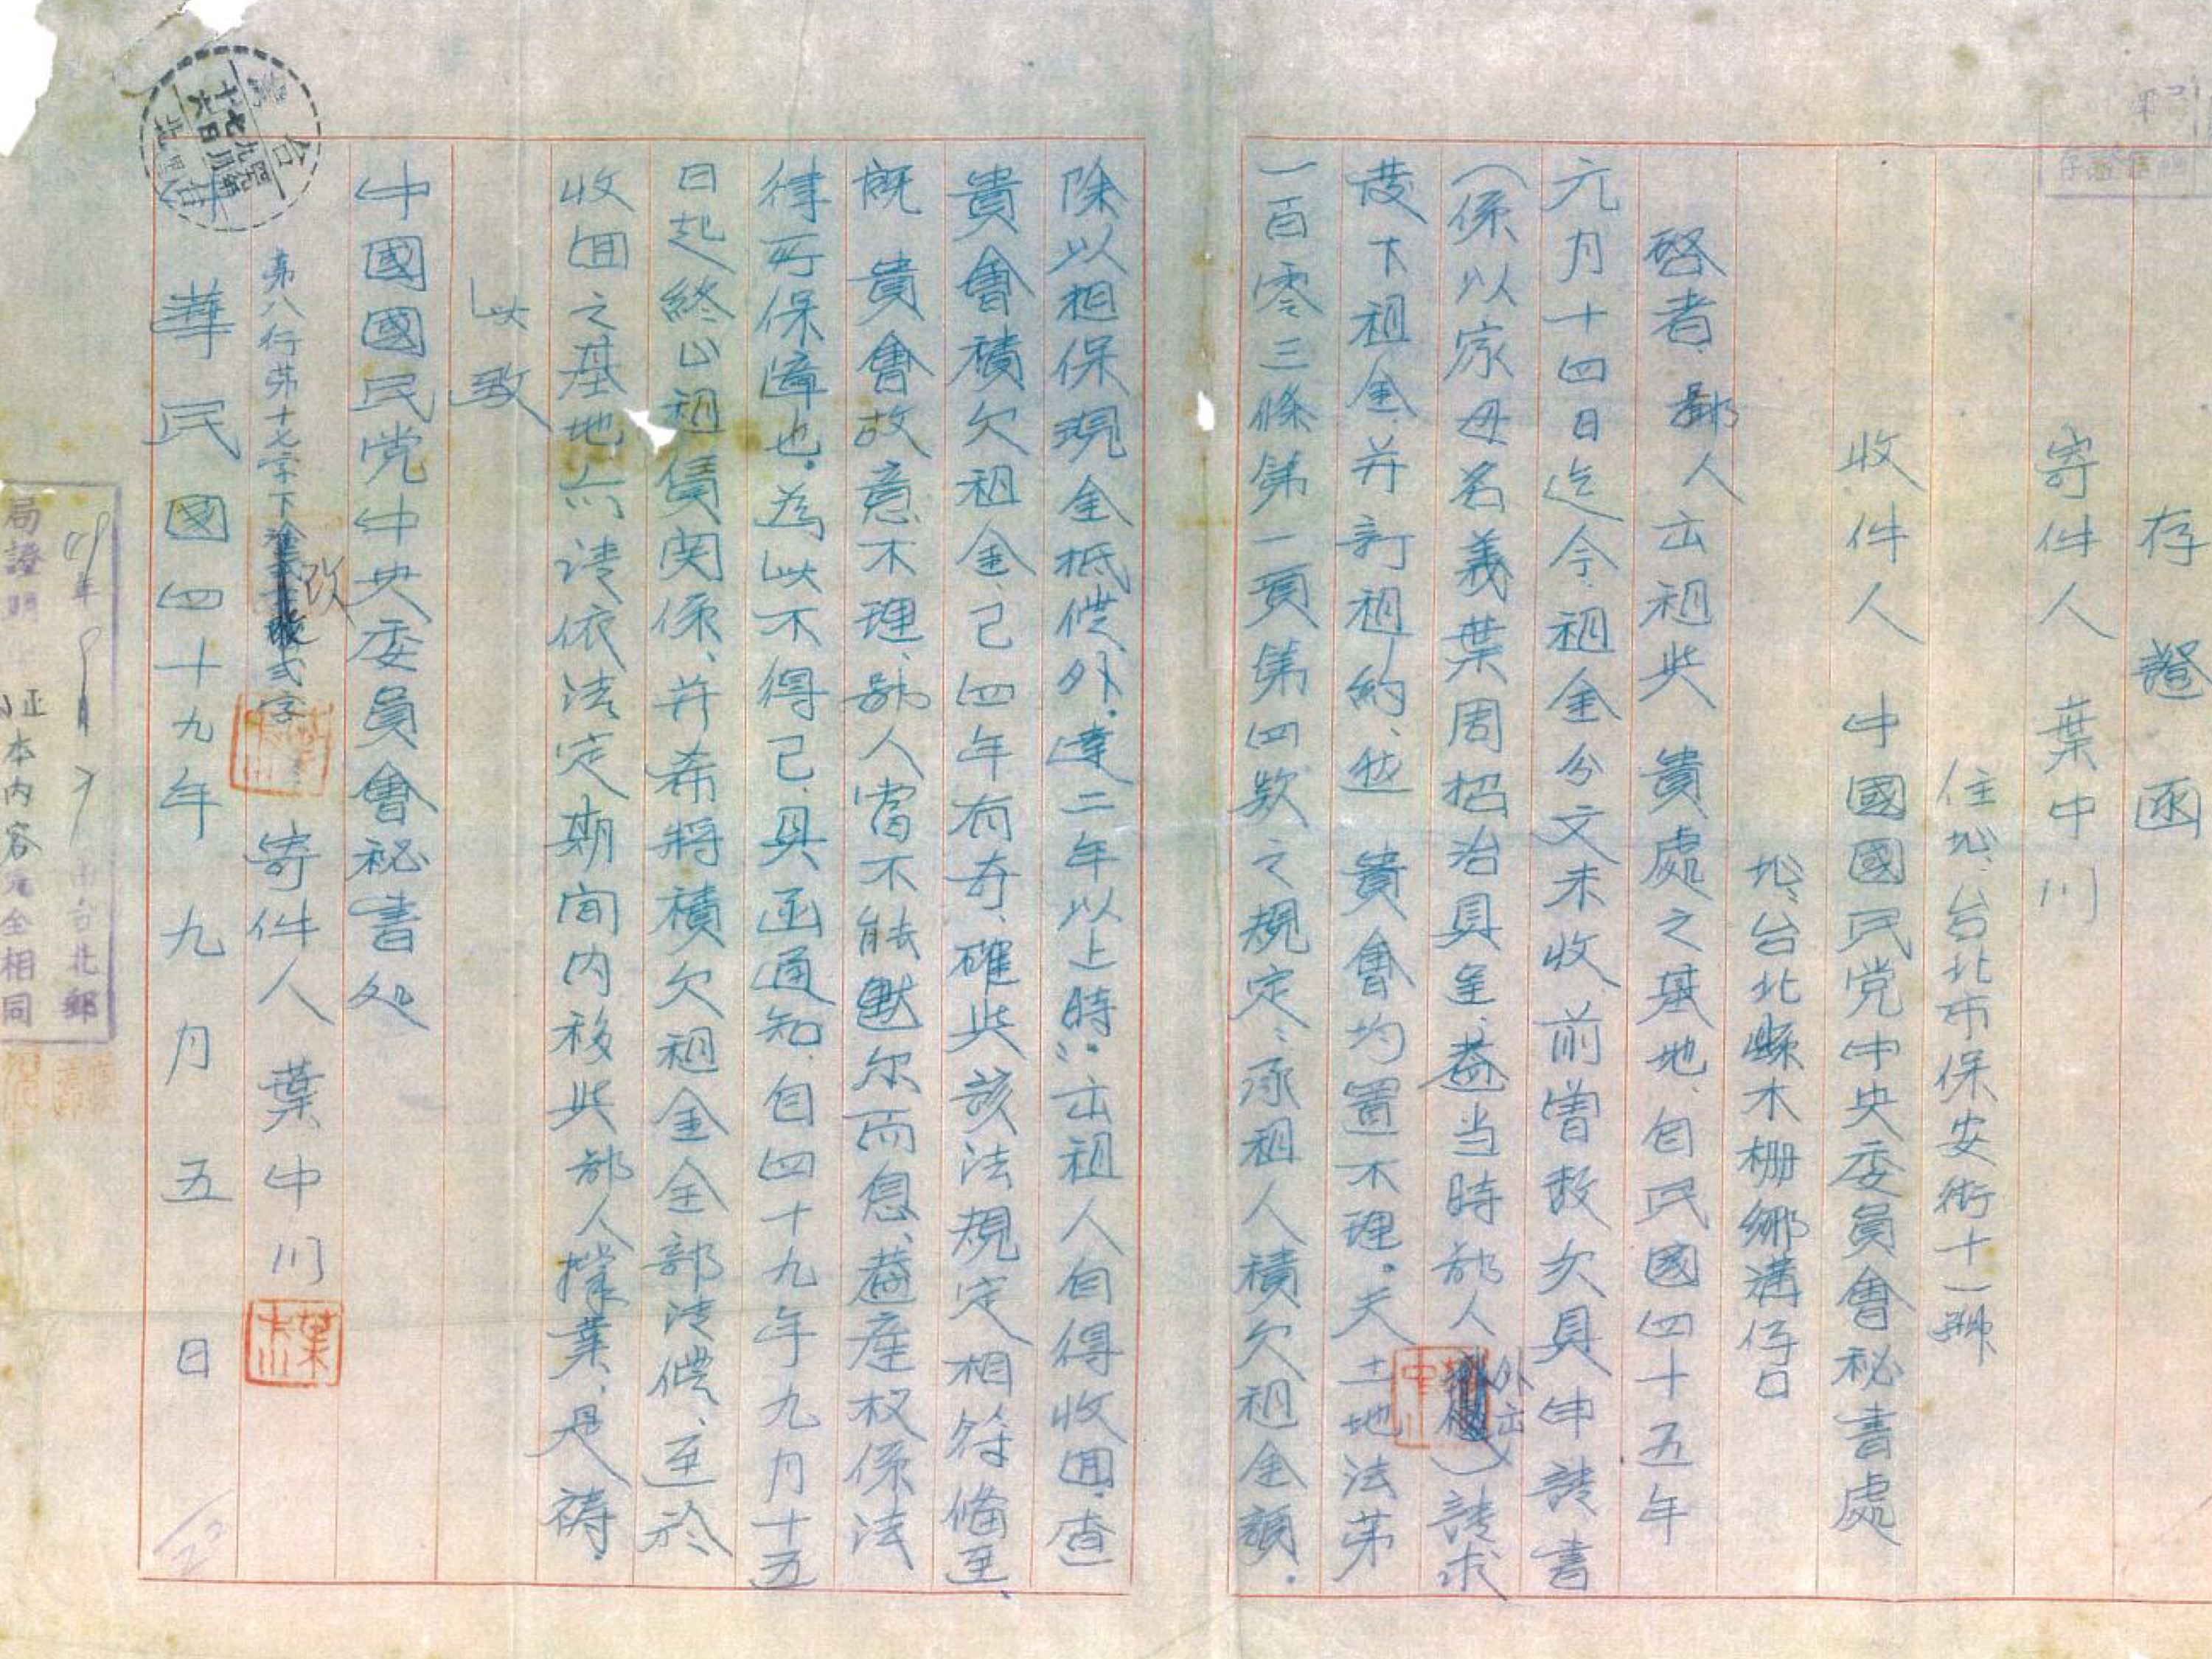 存證函
寄件人 葉中川
住址、台北市保安街十一號
收件人 中國國民党中央委員會秘書處
址、台北縣木柵鄉溝仔口
啓者、鄙人出租與 貴處之基地、自民國四十五年
元月十四日迄今、租金分文未收、前曾数次具申請書
(係以家母名義葉周招治具呈、蓋当時鄙人外出)請求
發下租金、并訂租約、然 貴會均置不理。夫土地法第
一百零三條第一項第四款之規定、承租人積欠租金額.
除以担保現金抵償外.達二年以上時.出租人自得收囬.查
貴會積欠租金、己四年有奇、確與該法規定相符條至、
既 貴會故意不理、鄙人當不能默尔而息、蓋産权係法
律所保障也.為此不得己、具函通知、自四十九年九月十五
日起終止租賃関係、并希將積欠租金全部清償、至於
收囬之基地亦請依法定期間内移與鄙人掌業、是禱.
此致
中國國民党中央委員會秘書处
第八行第十七字下塗改弍字
寄件人 葉中川
葉中川
中華民國四十九年九月五日
49年 9月 7 由台北郵
局證明 正本内容完全相同